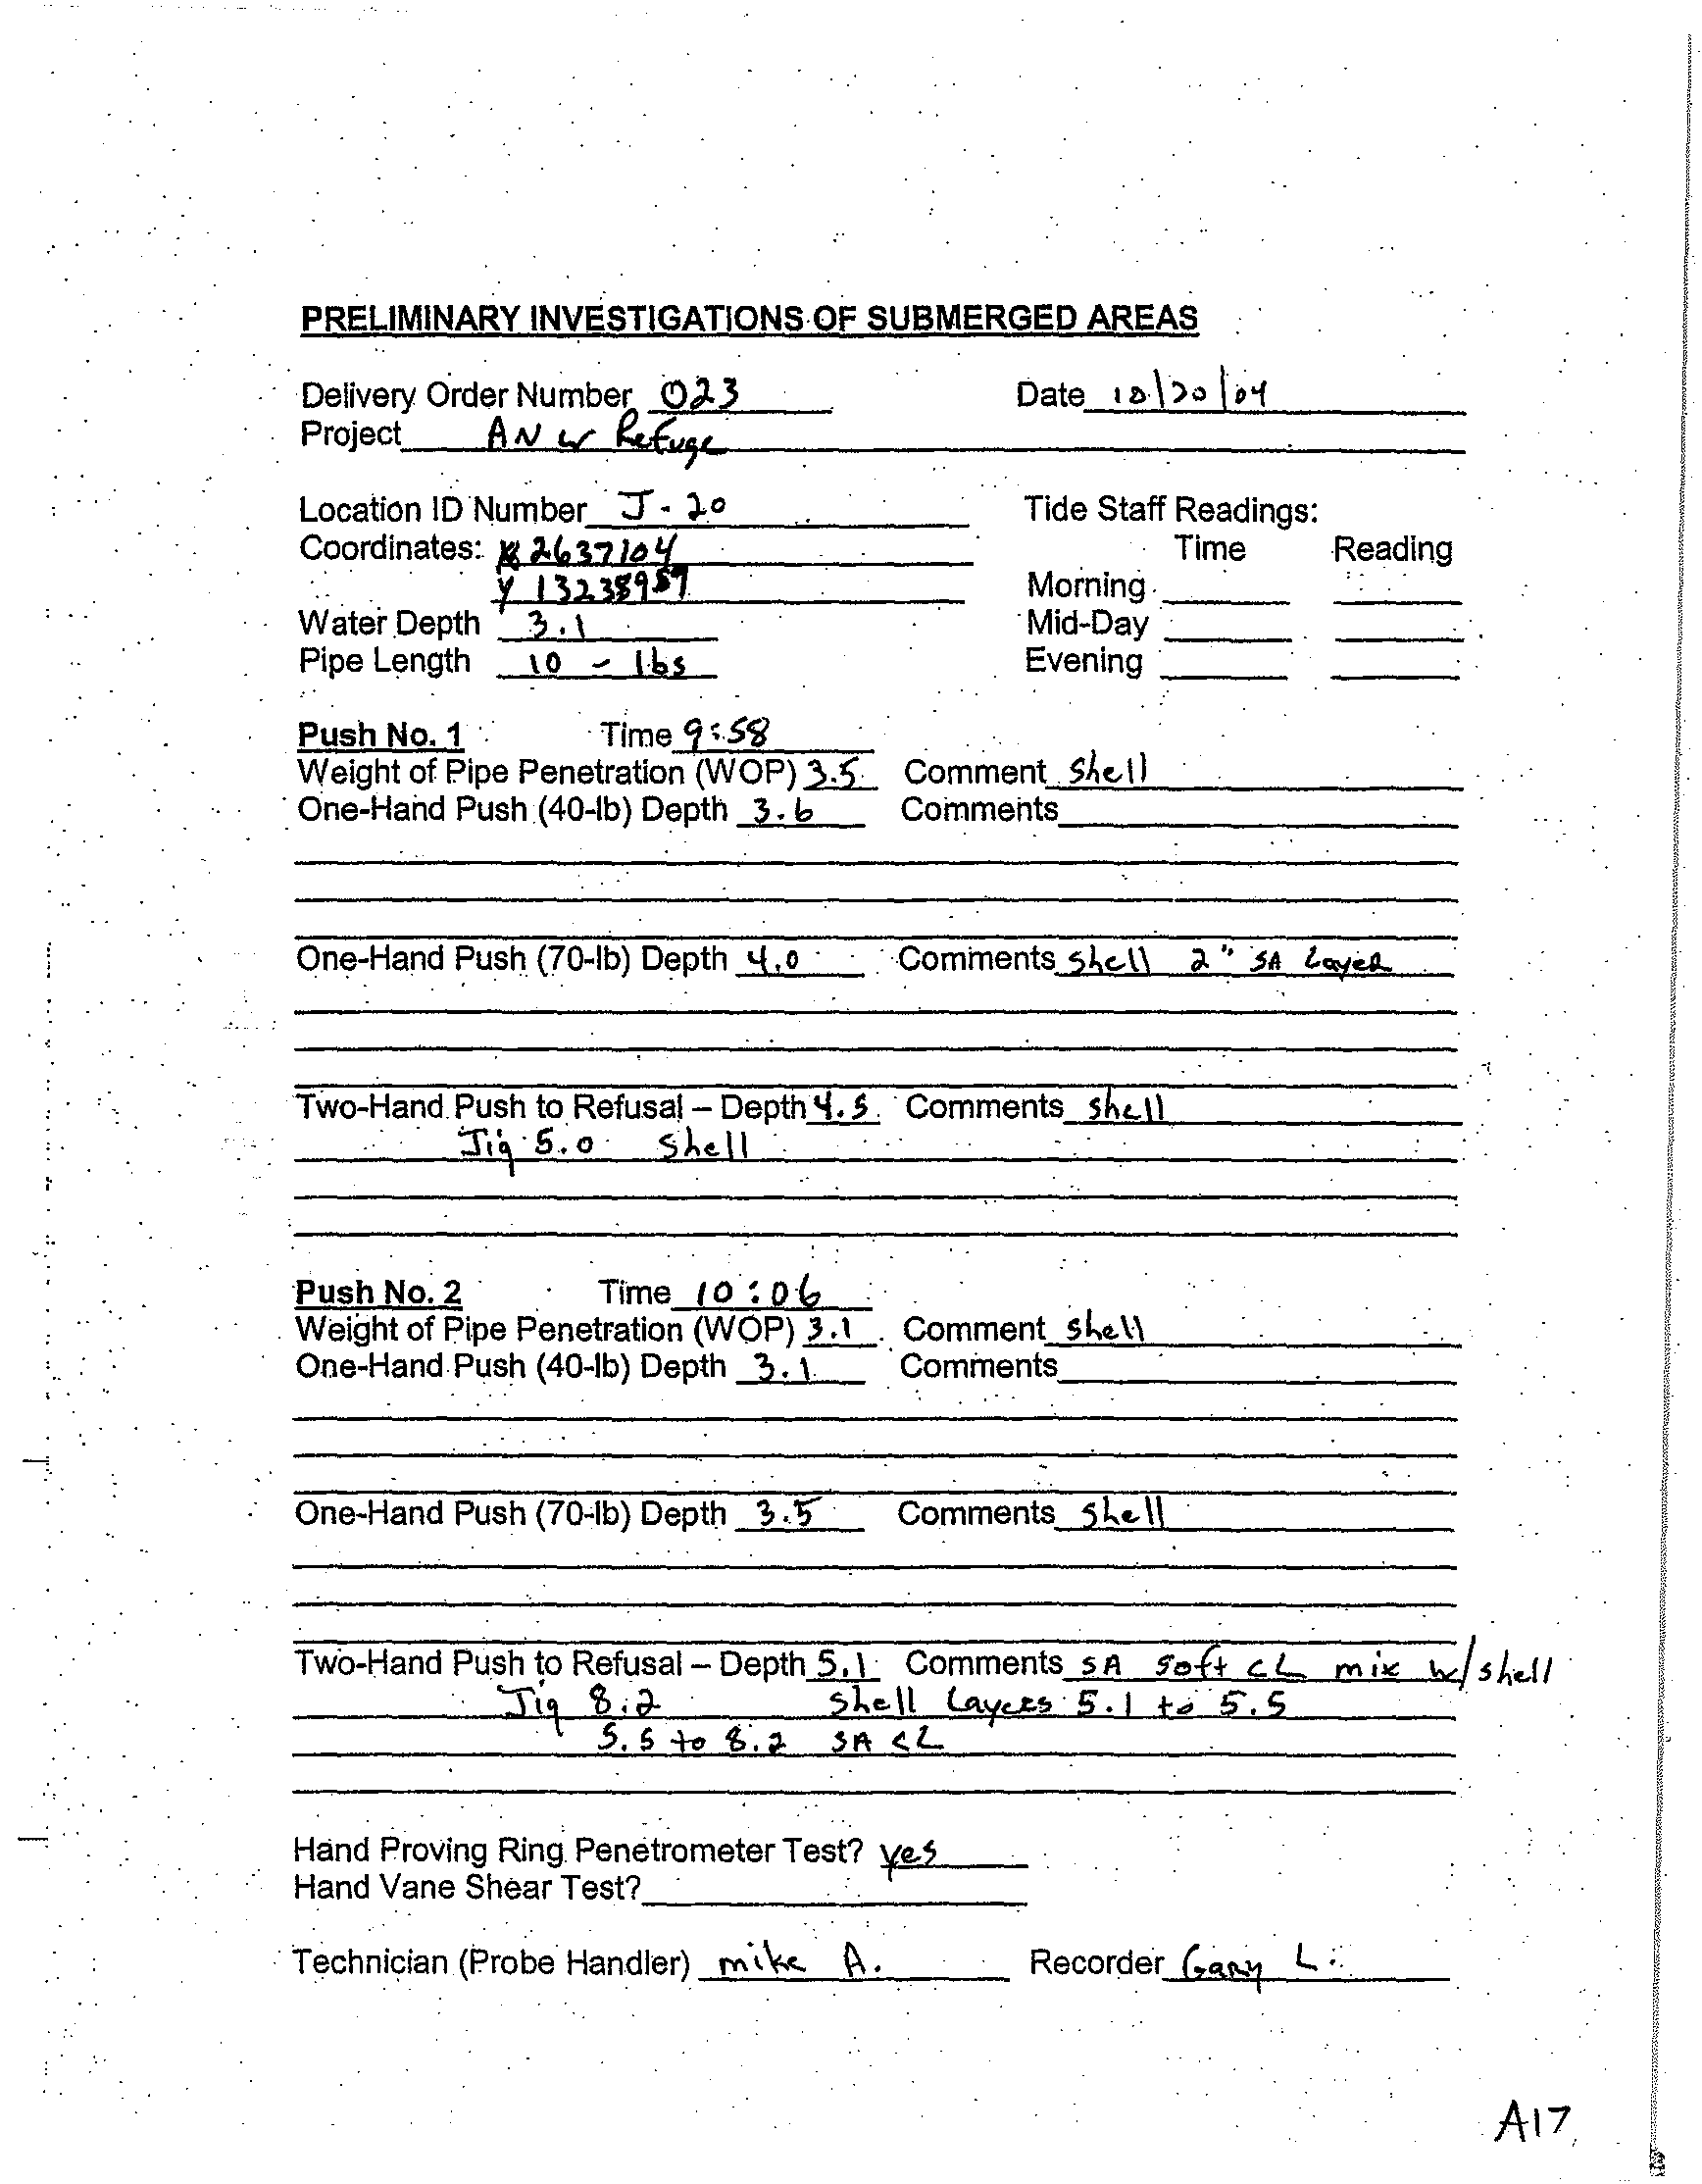 PRELIMINARY INVESTIGATIONS OF SUBMERGED AREAS
Delivery Order Number 023 Date 10/20/04
Project ANW Refuge
Location ID Number J-20 Tide Staff Readings:
Coordinates: X 2637104 Time Reading
Y 13238957 Morning
Water Depth 3.1 Mid-Day
Pipe Length 10 - lbs Evening
Push No. 1 Time 9:58
Weight of Pipe Penetration (WOP) 3.5 Comment shell
One-Hand Push (40-lb) Depth 3.6 Comments
One-Hand Push (70-lb) Depth 4.0 Comments shell 2" SA Layer
Two-Hand Push to Refusal – Depth 4.5 Comments shell
Jig 5.0 shell
Push No. 2 Time 10:06
Weight of Pipe Penetration (WOP) 3.1 Comment shell
One-Hand Push (40-lb) Depth 3.1 Comments
One-Hand Push (70-lb) Depth 3.5 Comments shell
Two-Hand Push to Refusal – Depth 5.1 Comments SA soft CL mix w/shell
Jig 8.2 shell Layers 5.1 to 5.5
5.5 to 8.2 SA CL
Hand Proving Ring Penetrometer Test? yes
Hand Vane Shear Test?
Technician (Probe Handler) mike A. Recorder Gary L.
A17